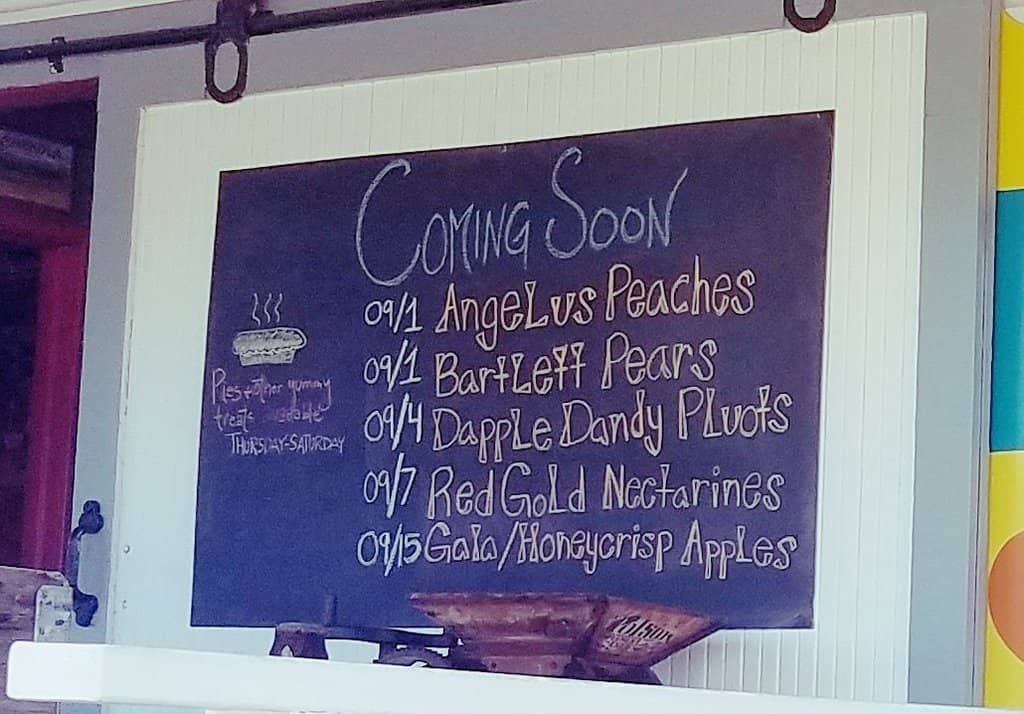 COMING SOON
09/1 AngeLus Peaches
09/1 BartLett Pears
09/4 DappLe Dandy PLuots
09/7 Red GoLd Nectarines
09/15 Gala/Honeycrisp AppLes
Pies + other yummy
treats
THURSDAY-SATURDAY